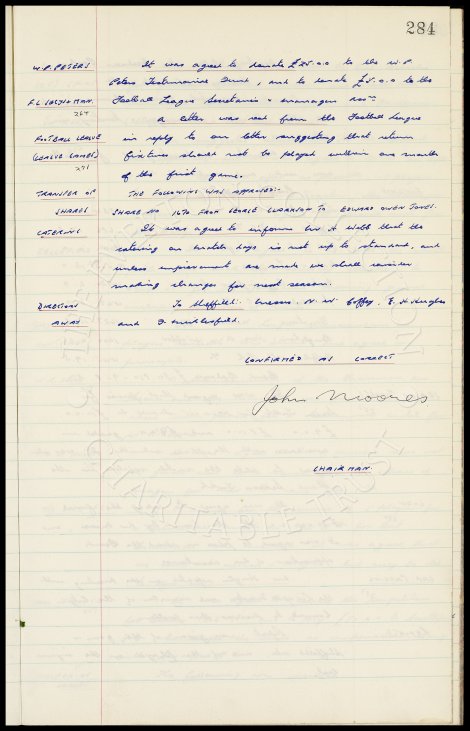 284
W.P. PETERS It was agreed to donate £25.0.0 to the W.P.
Peters Testimonial Fund, and to donate £5.0.0 to the
F.L. SECY & MAN. Football League Secretaries & managers Assn
264
A letter was read from the Football League
FOOTBALL LEAGUE in reply to our letter suggesting that return
(LEAGUE GAMES) fixtures should not be played within one month
271
of the first game.
TRANSFER OF THE FOLLOWING WAS APPROVED:-
SHARES SHARE NO 1670 FROM GEORGE TO EDWARD OWEN JONES.
CATERING It was agreed to inform Mr A Webb that the
catering on match days is not up to standard, and
unless improvement are made we shall consider
making changes for next season.
DIRECTION To Sheffield: Messrs. N. W. Coffey, E. H Hughes
AWAY and
CONFIRMED AS CORRECT
John Moores
CHAIRMAN
CHARITABLE TRUST